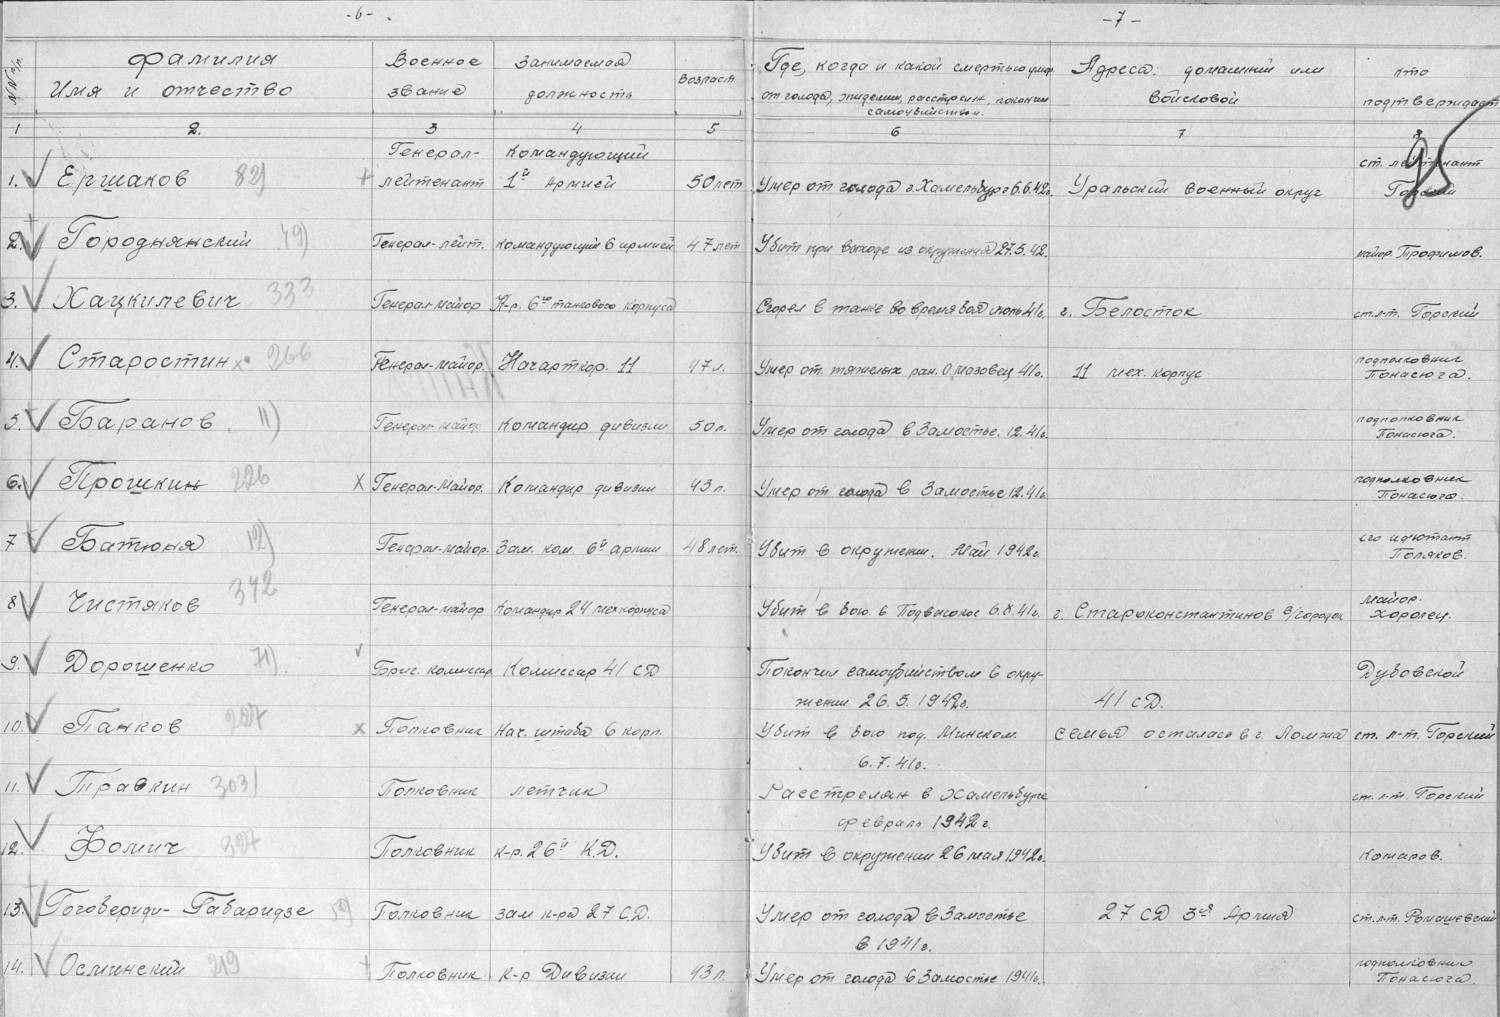 -6-
-7-
№№ п/п.
Фамилия
Имя и отчество
Военное
звание
Занимаемая
должность
Возраст
Где, когда и какой смертью умер
от голода, эпидемии, расстрелян, покончил
самоубийством.
Адреса: домашний или
войсковой
Кто
подтверждает
1 2. 3 4 5 6 7 8
95
1. Ершаков 82) + Генерал-
лейтенант Командующий
1й Армией 50 лет Умер от голода г. Хамельбург 6.6.42г. Уральский военный округ ст. лейтенант
Горский
2. Городнянский 49) Генерал-лейт. Командующий 6 армией 47 лет Убит при выходе из окружения 27.5.42. майор Трофимов.
3. Хацкилевич 333 Генерал-майор К-р. 6го танкового корпуса Сгорел в танке во время боя июнь 41г. г. Белосток ст. л-т. Горский
4. Старостин х 266 Генерал-майор. Начарткор. 11 47 л. Умер от тяжелых ран. О мазовец 41г. 11 мех. корпус подполковник
Понасюга.
5. Баранов 11) Генерал-майор Командир дивизии 50 л. Умер от голода в Замостье. 12.41г. подполковник
Понасюга.
6. Прошкин 226 х Генерал-Майор. Командир дивизии 43 л. Умер от голода в Замостье 12.41г. подполковник
Понасюга.
7 Батюня 12) Генерал-майор. Зам. ком. 6й армии 48 лет. Убит в окружении. Май 1942г. его адютант
Поляков.
8 Чистяков 342 Генерал-майор Командир 24 мехкорпуса Убит в бою. в Подвысокое 6.8.41г. г. Староконстантинов в/городок майор.
Хоролец.
9. Дорошенко 71) Бриг. комиссар Комиссар 41 СД Покончил самоубийством в окру-
жении 26.5.1942г. 41 СД. Дубовской
10. Панков 227 х Полковник Нач. штаба 6 корп. Убит в бою под. Минском.
6.7.41г. семья осталась в г. Ломжа ст. л-т. Горский
11. Травкин 303) Полковник летчик Расстрелян в Хамельбурге
февраль 1942г. ст. л-т. Горский
12. Фомич 327 Полковник к-р. 26й К.Д. Убит в окружении 26 мая 1942г. Комаров.
13. Гоговериди-Габаридзе 59) Полковник зам к-ра 27 СД. Умер от голода в Замостье
в 1941г. 27 СД 3ей Армия ст. л-т. Ромашевский
14. Осминский 219 + Полковник к-р Дивизии 43 л. Умер от голода в Замостье 1941г. подполковник
Понасюга.